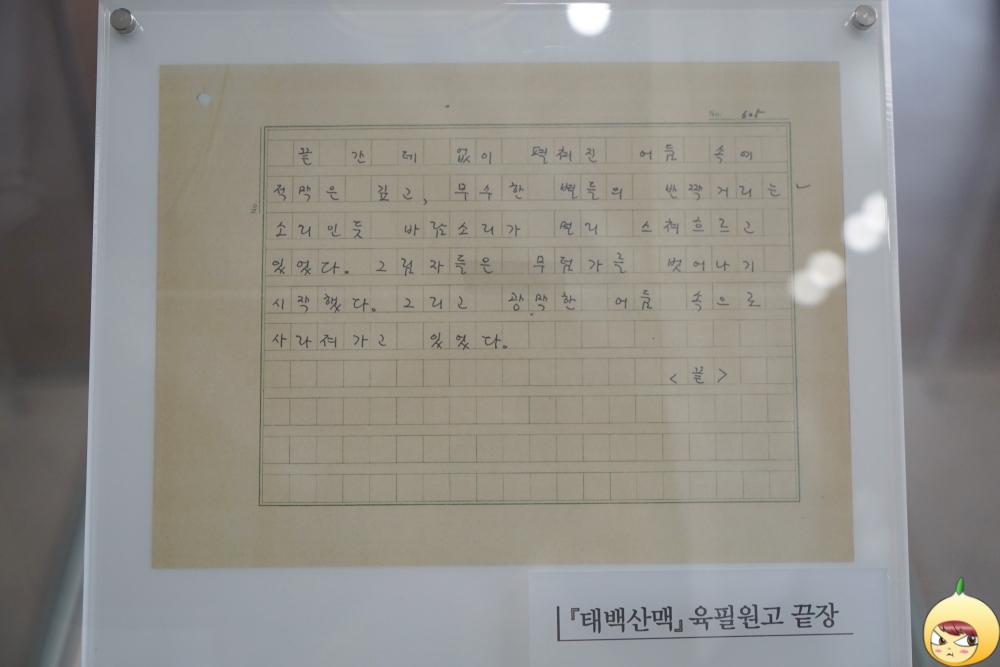 No. 605
끝 간 데 없이 펼쳐진 어둠 속에
적막은 깊고, 무수한 별들의 반짝거리는
소리인듯 바람소리가 멀리 스쳐흐르고
있었다. 그림자들은 무덤가를 벗어나기
시작했다. 그리고 광막한 어둠 속으로
사라져가고 있었다.
<끝>
『태백산맥』 육필원고 끝장